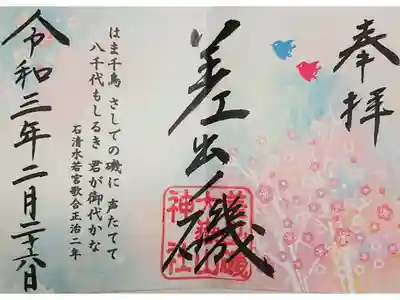 奉拝
差出ノ磯
神社
はま千鳥 さしでの磯に 声たてて
八千代もしるき 君が御代かな
石清水若宮歌合正治二年
令和三年二月二十六日